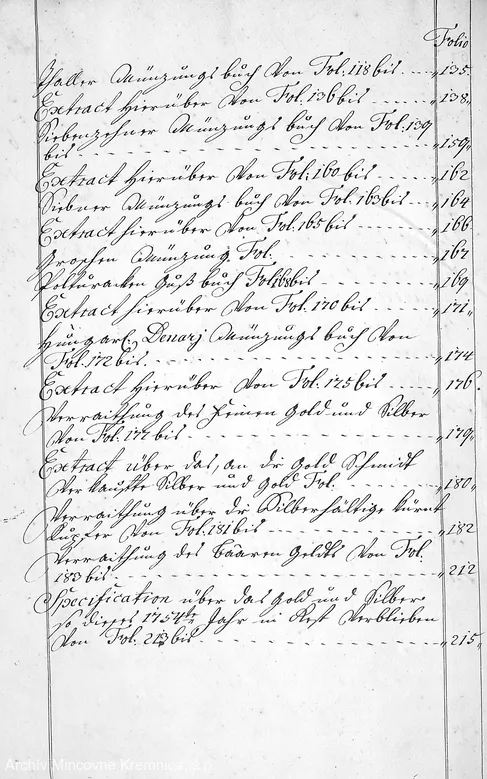 Folio
Thaller Münzungs buch Von Fol: 118 bis „135.
Extract hierüber Von Fol: 136 bis „138„
Siebenzehner Münzungs buch Von Fol: 139
bis „159„
Extract hierüber Von Fol: 160 bis „162
Siebner Münzungs buch Von Fol: 163 bis „164
Extract hierüber Von Fol: 165 bis „166
Groschen Münzung Fol. „167
Polturacken Guß buch Fol: 168 bis „169
Extract hierüber Von Fol: 170 bis „171„
Hungarl. Denarj Münzungs buch Von
Fol. 172 bis. „174
Extract hierüber Von Fol: 175 bis „176.
Verraithung des Feinen Gold und Silber
Von Fol: 177 bis „179„
Extract über das, an dr Gold Schmidt
Verkauffte Silber und Gold Fol. „180„
Verraithung über dr Silberhältige
Kupfer Von Fol: 181 bis „182
Verraithung des Baaren Geldts Von Fol.
183 bis „212
Specification über das Gold und Silber
so dieses 1754te Jahr in Rest Verblieben
Von Fol. 213 bis „215„
Archív Mincovne Kremnica, š.p.